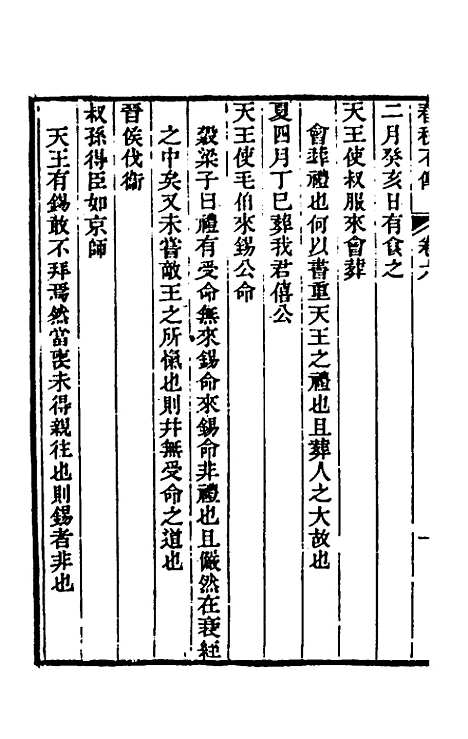 春秋不傳 卷六 一
二月癸亥日有食之
天王使叔服來會葬
會葬禮也何以書重天王之禮也且葬人之大故也
夏四月丁巳葬我君僖公
天王使毛伯來錫公命
穀梁子曰禮有受命無來錫命來錫命非禮也且儼然在衰絰
之中矣又未嘗敵王之所愾也則并無受命之道也
晉侯伐衛
叔孫得臣如京師
天王有錫敢不拜焉然當喪未得親往也則錫者非也